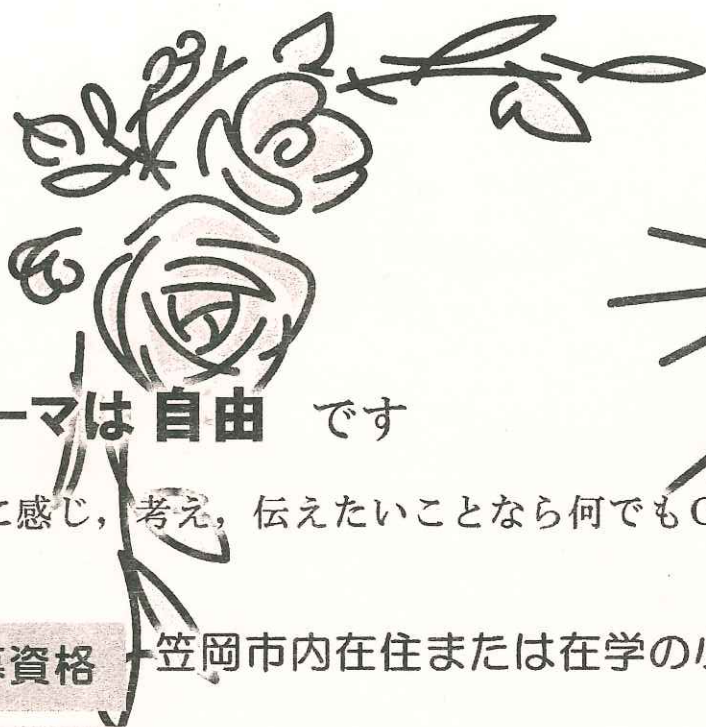 ーマは 自由 です
に感じ，考え，伝えたいことなら何でもO
資格 笠岡市内在住または在学の小